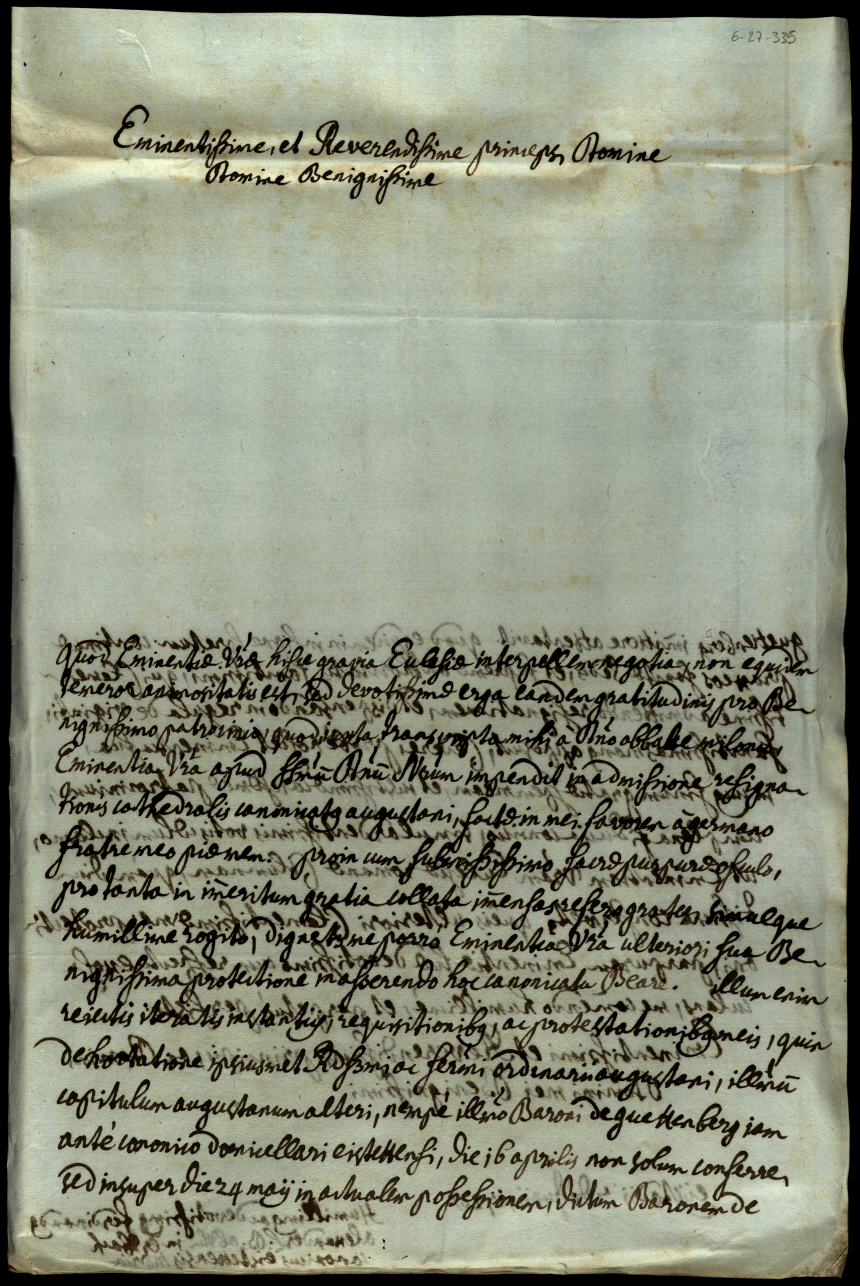 6-27-335
Eminentissime, et Reverendissime princeps, Domine
Domine Benignissime
Quod Eminentiæ Vræ hisce gravia Ecclesiæ interpellem negotia, non equidem
temeroe animositatis est, sed devotissimæ erga eandem gratitudinis pro Be-
nignissimo patrocinio, quod juxta transcripta mihi a Dno abbate
Eminentia Vra apud SSmū Dnū Nrum impendit in admissione resigna-
tionis cathedralis canonicatq augustani, factæ in mei favorem a germano
fratre meo piæ mem: proin cum submississimo sacræ purpuræ osculo,
pro tanta in im̄eritum gratia collata im̄ensas refero grates, simulque
humillime rogito, dignetur me porro Eminentia Vra ulteriori sua Be-
nignissima protectione in asserendo hoc canonicatu Beare. illum enim
reiectis iteratis instantijs, requisitionibq, ac protestationibq meis, quin
dehortatione ipsiusmet Rdssmi ac sermi ordinarii augustani, illmū
capitulum augustanum alteri, nempé illmo Baroni de guettenberg jam
anté canonico domicellari eistettensi, die 16 aprilis non solum conferre,
sed insuper die 24 maij in actualem possessionem, dictum Baronem de